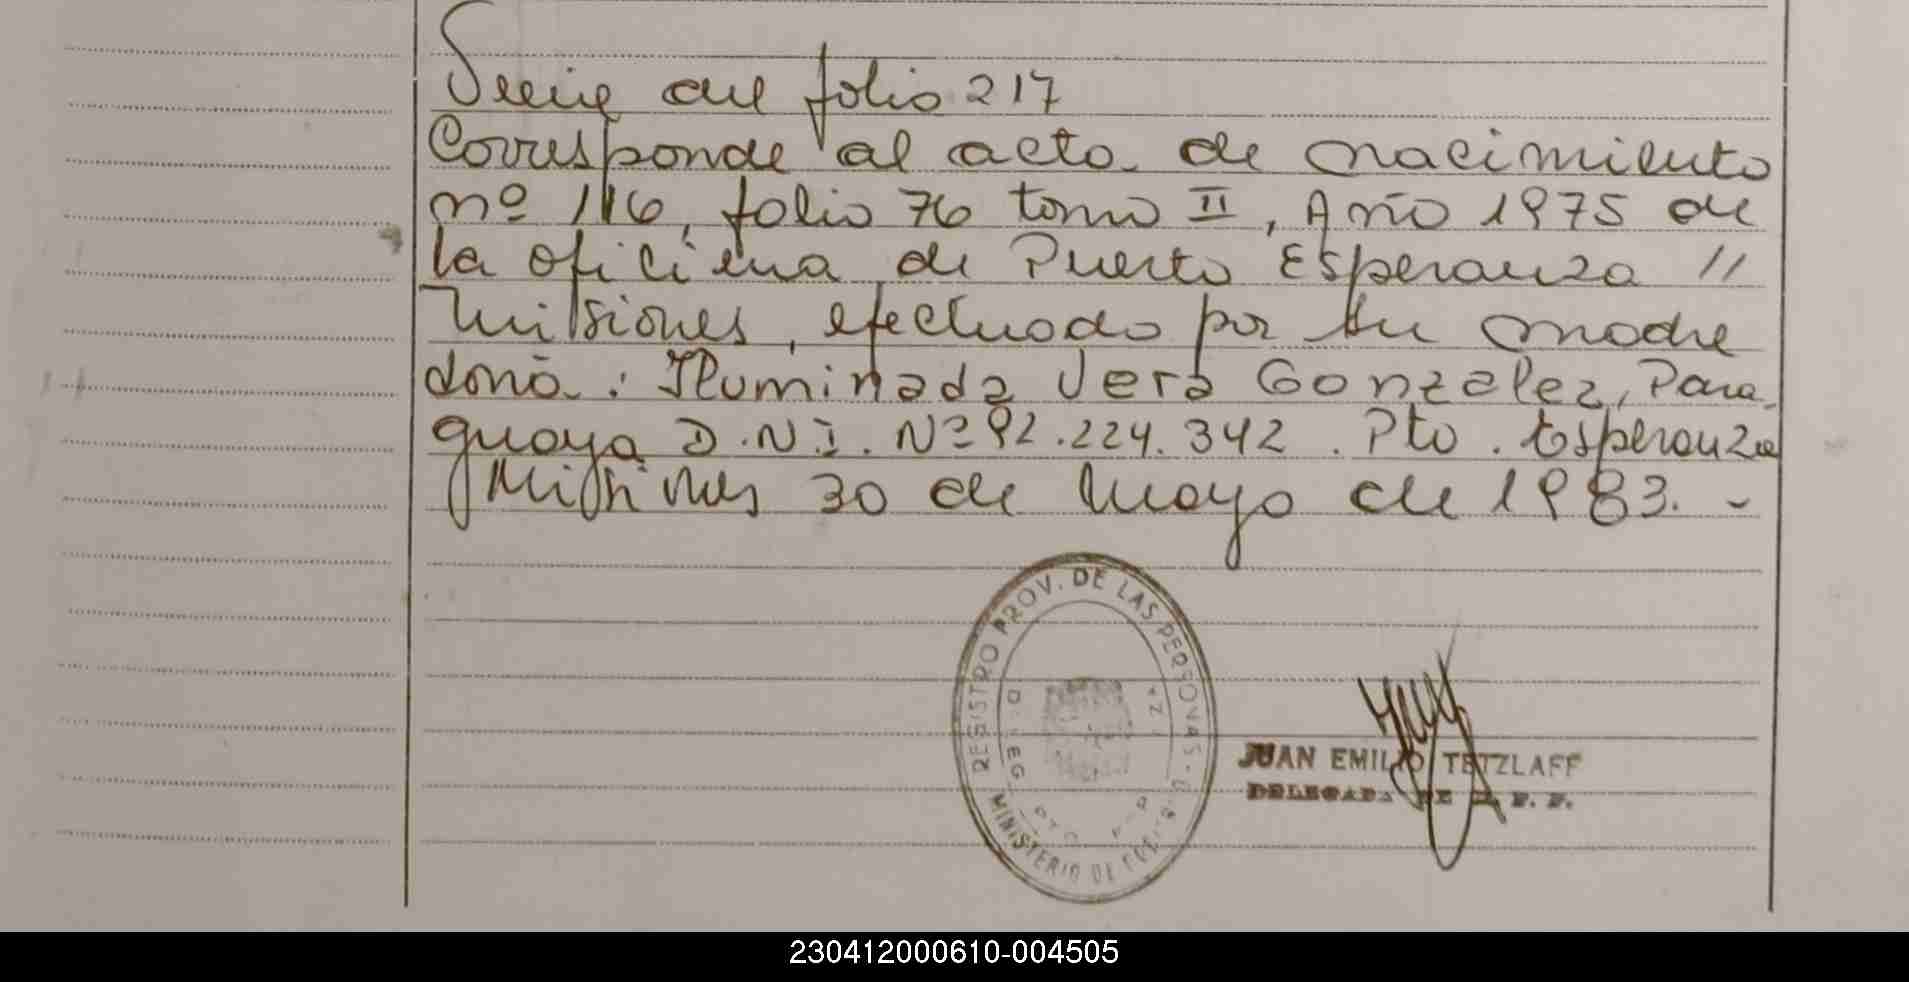 Viene del folio 217
Corresponde al acta de nacimiento
nº 116, folio 76 tomo II, Año 1975 de
la oficina de Puerto Esperanza //
Misiones, efectuado por su madre
doña: Iluminada Vera Gonzalez, Para-
guaya D.N.I. Nº 92.224.342. Pto. Esperanza
Misiones 30 de Mayo de 1983.-
REGISTRO PROV. DE LAS PERSONAS
MINISTERIO DE
JUAN EMILIO TETZLAFF
DELEGADA DE
230412000610-004505